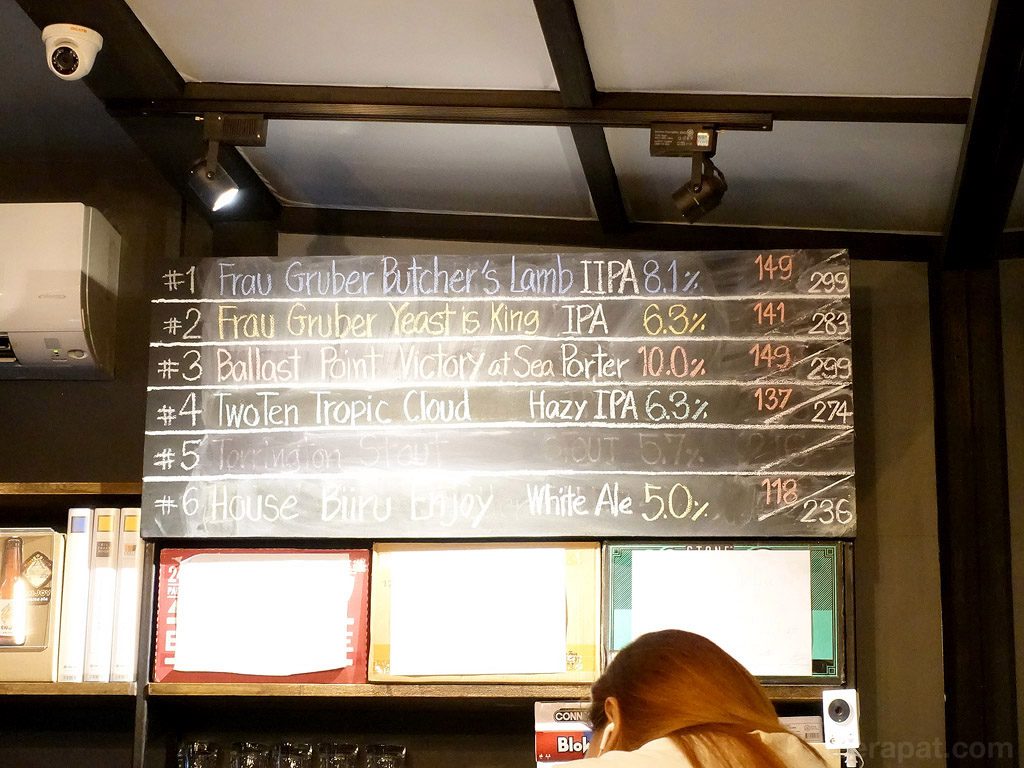 #1 Frau Gruber Butcher's Lamb IIPA 8.1% 149 299
#2 Frau Gruber Yeast is King IPA 6.3% 141 283
#3 Ballast Point Victory at Sea Porter 10.0% 149 299
#4 TwoTen Tropic Cloud Hazy IPA 6.3% 137 274
#5 Torrington Stout STOUT 5.7%
#6 House Biiru Enjoy White Ale 5.0% 118 236
STONE
CONN
Blok
rapat.com